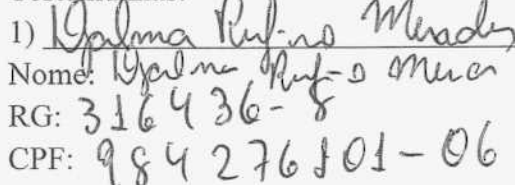 1) Djalma Rufino
Nome: Djalma Rufino
RG: 316436-8
CPF: 984276101-06